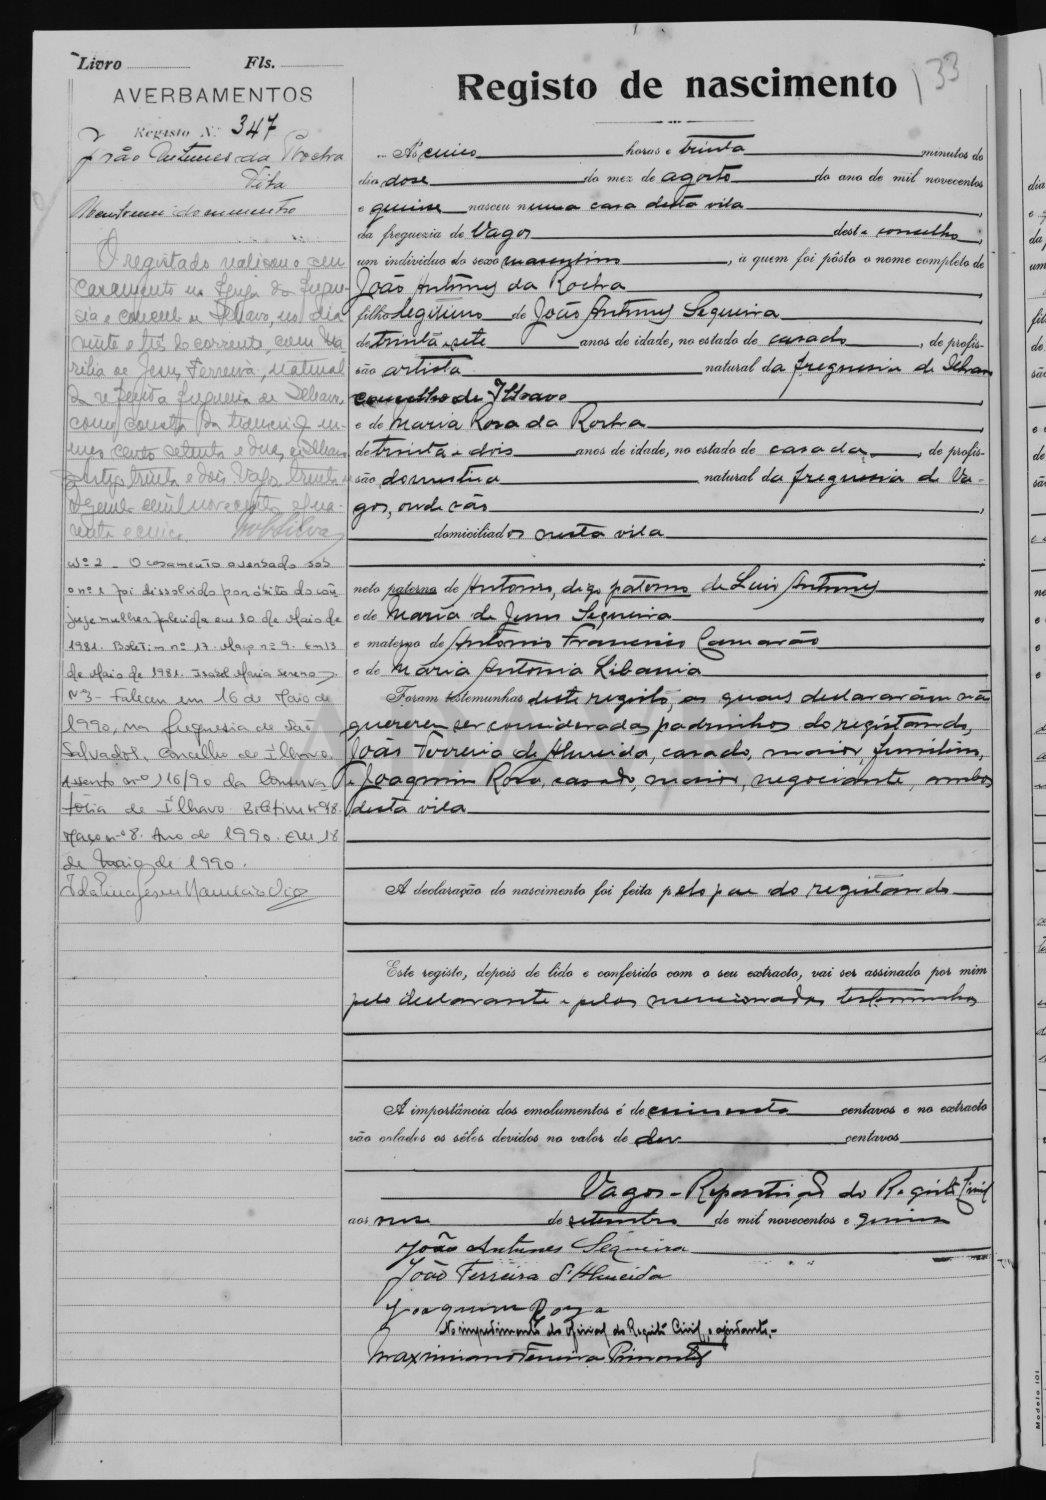 Livro Fls.
AVERBAMENTOS
Registo N.º 347
João Antunes da Rocha
Vila
O registado realizou o seu
casamento na Igreja da fregue-
sia e concelho de Ilhavo, no dia
vinte e três do corrente, com Ma
ria de Jesus Ferreira, natural
da referida freguesia de Ilhavo,
como consta da
mero cento setenta e dois, de Ilhavo
trinta e dois. Vagos, trinta de
Dezembro de mil novecentos e qua-
renta e cinco.
Nº 2 - O casamento averbado sob
o nº 1 foi dissolvido por óbito do côn
juge mulher falecida em 10 de Maio de
1981. Boletim nº 17. Maço nº 9. Em 13
de Maio de 1981. Isabel Maria Sereno
Nº 3 - Faleceu em 16 de Maio de
1990, na freguesia de São
Salvador, concelho de Ílhavo.
Assento nº 116/90 da Conserva
tória de Ílhavo. Boletim nº 98.
Maço nº 8. Ano de 1990. Em 18
de Maio de 1990.
133
Registo de nascimento
Às cinco horas e trinta minutos do
dia dose do mez de agosto do ano de mil novecentos
e quinse nasceu numa casa desta vila
da freguezia de Vagos deste concelho,
um individuo do sexo masculino, a quem foi pôsto o nome completo de
João Antunes da Rocha
filho legitimo de João Antunes Sequeira
de trinta e sete anos de idade, no estado de casado, de profis-
são artista natural da freguesia de Ilhavo
concelho de Ilhavo
e de Maria Rosa da Rocha
de trinta e dois anos de idade, no estado de casada, de profis-
são domestica natural da freguesia de Va-
gos, onde são
domiciliados nesta vila
neto paterno de Antonio, digo paterno de Luis Antunes
e de Maria de Jesus Sequeira
e materno de Antonio Francisco Camarão
e de Maria Antonia Libania
Foram testemunhas deste registo, as quais declararam não
quererem ser consideradas padrinhos do registando,
João Ferreira de Almeida, casado, maior,
e Joaquim Roza, casado, maior, negociante, ambos
desta vila
A declaração do nascimento foi feita pelo pai do registando
Este registo, depois de lido e conferido com o seu extracto, vai ser assinado por mim
pelo declarante e pelas mencionadas testemunhas
A importância dos emolumentos é de cincoenta centavos e no extracto
vão colados os sêlos devidos no valor de dez centavos
Vagos - Repartição do Registo Civil
aos de setembro de mil novecentos e quinse
João Antunes Sequeira
João Ferreira d'Almeida
Joaquim Roza
No impedimento do oficial do Registo Civil, o ajudante,-
Maximiano Ferreira Pimentel
Modelo 101